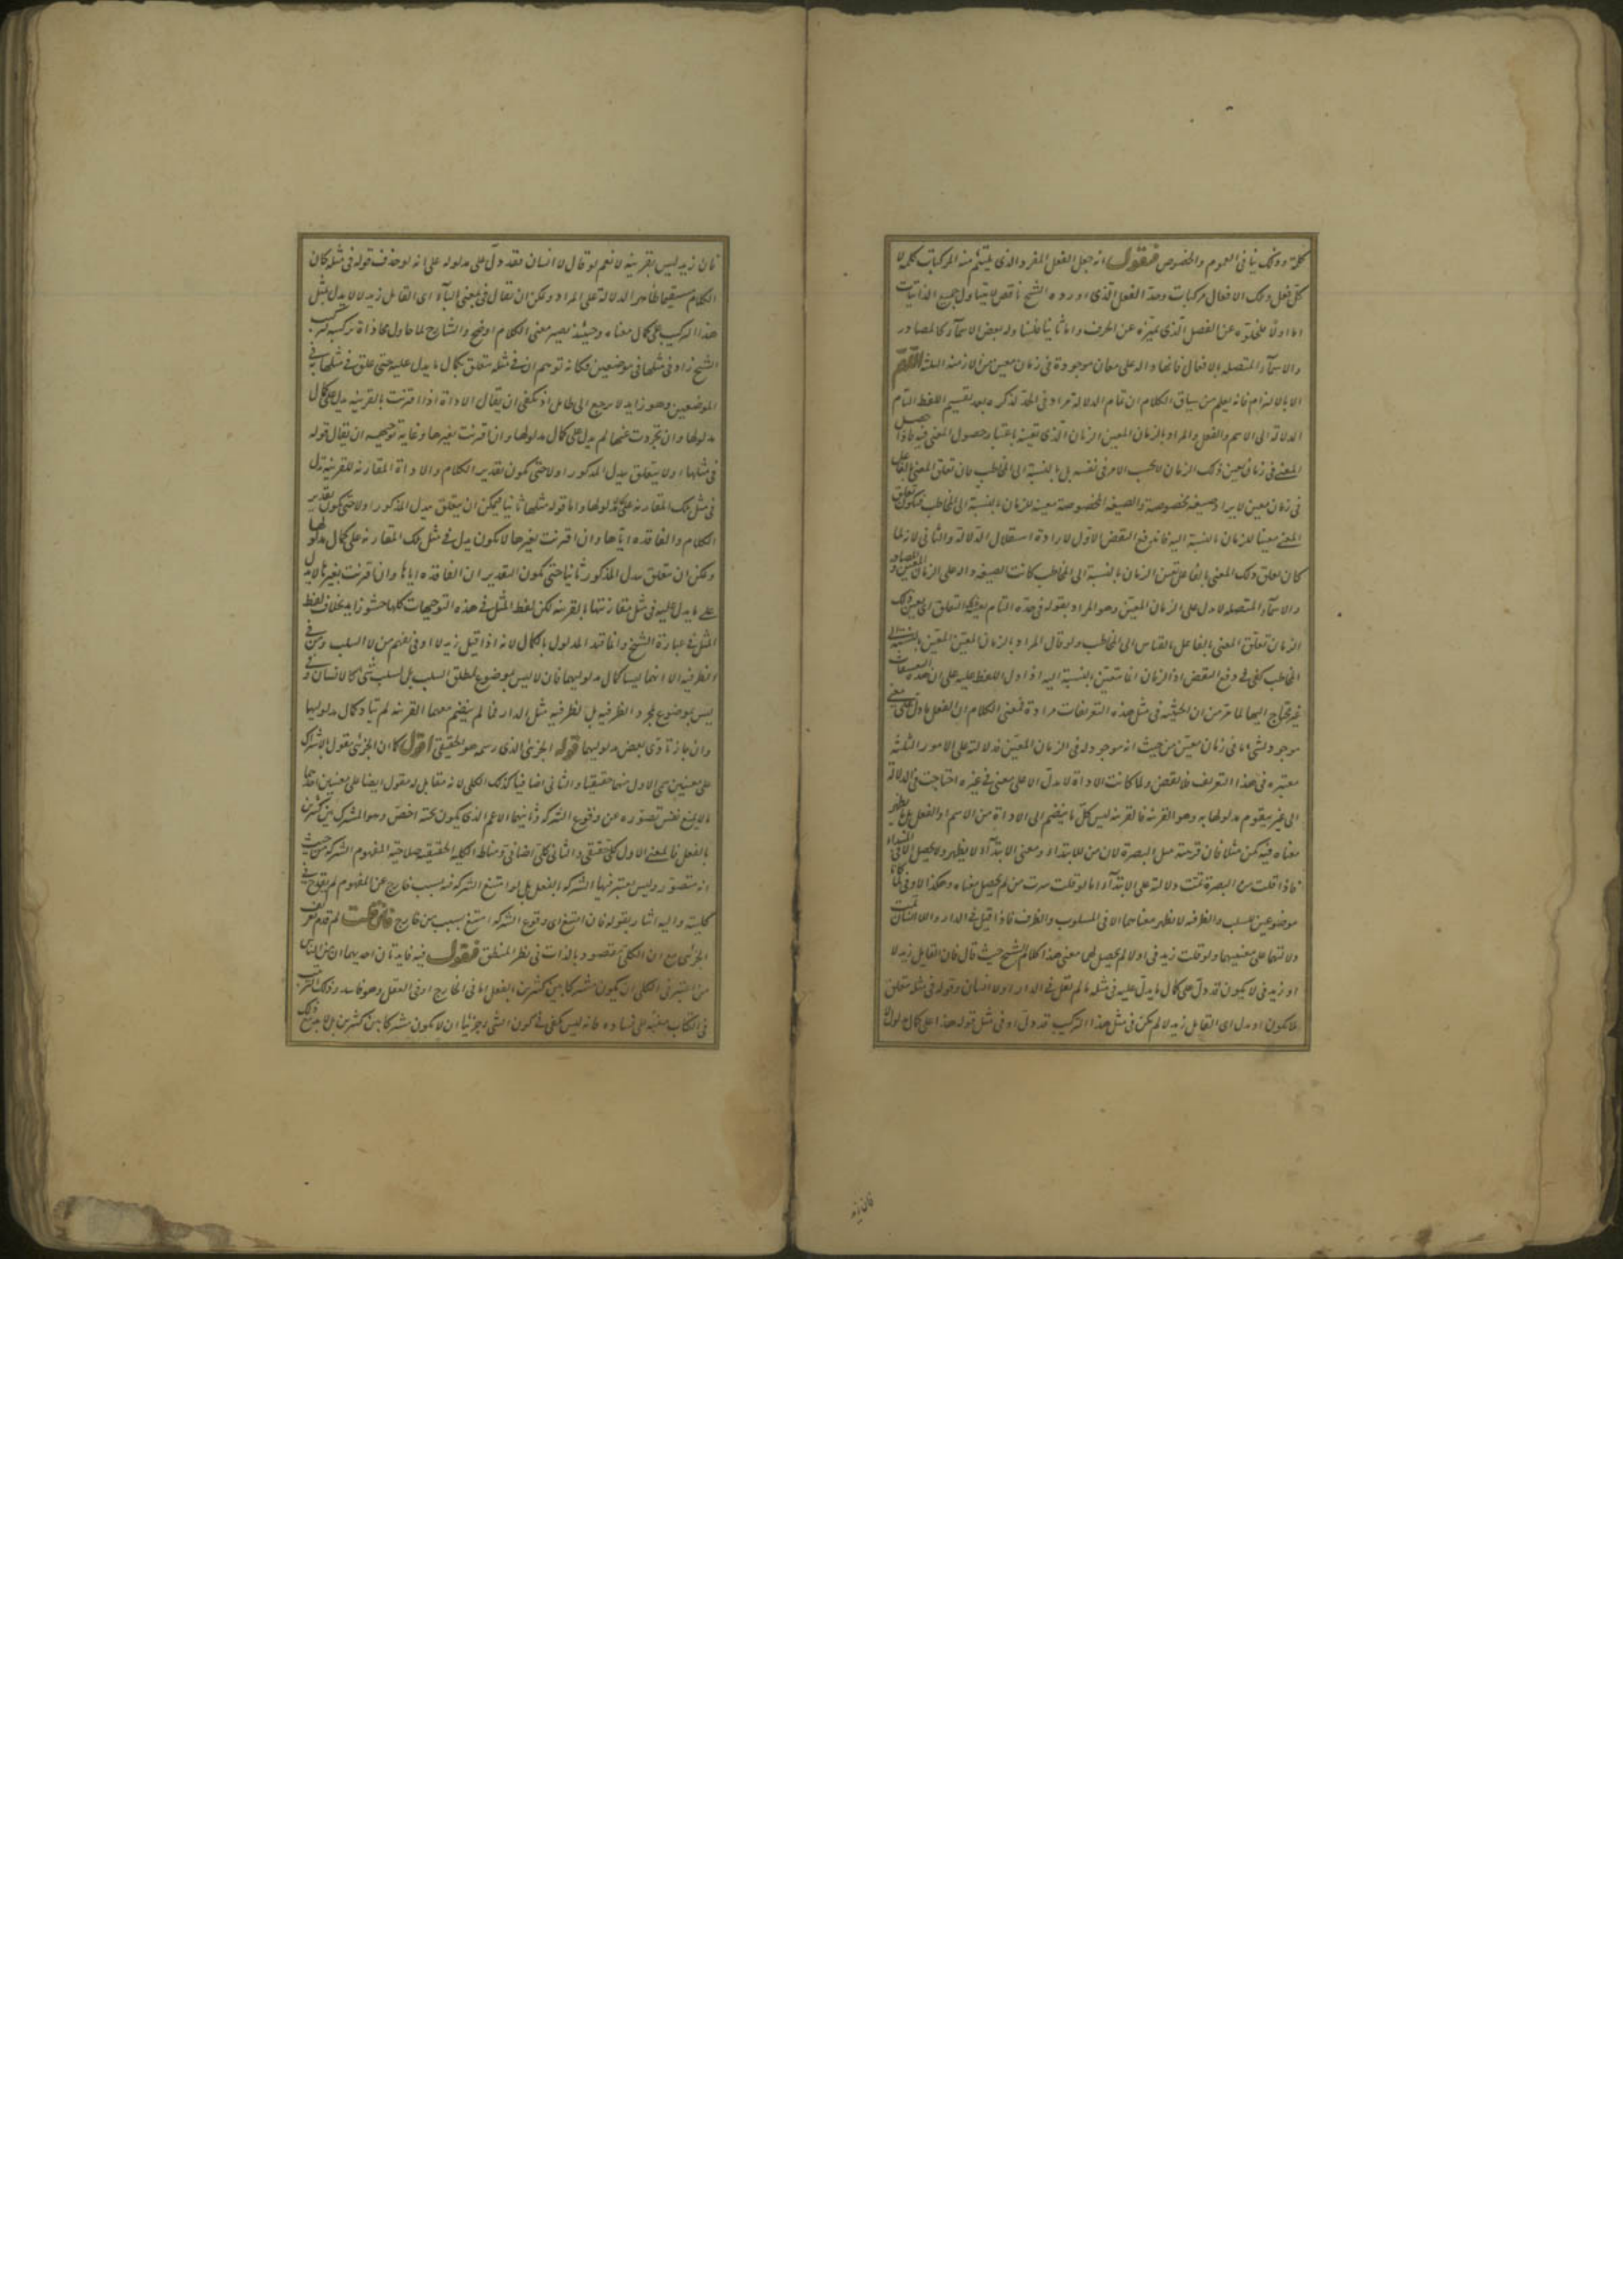 كلية وذلك ينافى العموم والخصوص فنقول انه جعل الفعل المفرد الذى يلتئم منه المركبات كلمة لا
كل فعل وتلك الافعال مركبات وحد الفعل الذى اورده الشيخ ناقص لا يتناول جميع الذاتيات
اما اولا فلخلوه عن الفصل الذى يميزه عن الحرف واما ثانيا فلتناوله بعض الاسماء كالمصادر
والاسماء المتصلة بالافعال فانها دالة على معان موجودة فى زمان معين من الازمنة الثلثة اللهم
الا بالالتزام فانه يعلم من سياق الكلام ان تمام الدلالة مراد فى الحد لذكره بعد تقسيم اللفظ التام
الدلالة الى الاسم والفعل والمراد بالزمان المعين الزمان الذى تعينه باعتبار حصول المعنى فيه فاذا حصل
المعنى فى زمان يعين ذلك الزمان لا بحسب الامر فى نفسه بل بالنسبة الى المخاطب فان تعلق المعنى بالفاعل
فى زمان معين لا يراد وصيغة مخصوصة والصيغة المخصوصة معينة للزمان بالنسبة الى المخاطب فيكون تعلق
المعنى معينا للزمان بالنسبة اليه فاندفع النقض الاول لارادة استقلال الدلالة والثانى لانه لما
كان تعلق ذلك المعنى بالفاعل يعين الزمان بالنسبة الى المخاطب كانت الصيغة دالة على الزمان المعين والمصادر
والاسماء المتصلة لا تدل على الزمان المعين وهو المراد بقوله فى حده التام يفيد التعلق الى معين ذلك
الزمان تعلق المعنى بالفاعل بالقياس الى المخاطب ولو قال المراد بالزمان المعين المعين بالنسبة الى
المخاطب كفى فى دفع النقض اذ الزمان انما يتعين بالنسبة اليه اذا دل اللفظ عليه على ان هذه التعسفات
غير محتاج اليها لما مر من ان الحيثية فى مثل هذه التعريفات مرادة فمعنى الكلام ان الفعل ما دل على معنى
موجود لشئ ما فى زمان معين من حيث انه موجود له فى الزمان المعين فدلالته على الامور الثلثة
معتبرة فى هذا التعريف فلا نقض ولما كانت الاداة لا تدل الا على معنى فى غيره احتاجت فى الدلالة
الى غير يتقوم مدلولها به وهو القرينة فالقرينة ليس كل ما ينضم الى الاداة من الاسم او الفعل بل ما يظهر
معناه فيه كمن مثلا فان قرينته مثل البصرة لان من للابتداء ومعنى الابتداء لا يظهر ولا يحصل الا فى المبتداء
فاذا قلت من البصرة تمت دلالته على الابتداء اما لو قلت سرت من لم يحصل معناه وهكذا لا وفى لما كانا
موضوعين للسلب والظرفية لا يظهر معناهما الا فى المسلوب والظرف فاذا قيل فى الدار ولا انسان تمت
دلالتهما على معنييهما ولو قلت زيد فى او لا لم يحصل لهما معنى هذا كلام الشيخ حيث قال فان القايل زيد لا
او زيد فى لا يكون قد دل على كمال ما يدل عليه فى مثله ما لم يقل فى الدار او لا انسان وقوله فى مثله متعلق
بلا يكون او بدل اى القايل زيد لا لم يكن فى مثل هذا التركيب قد دل او فى مثل قوله هذا على كمال مدلوله
فان زيد
فان زيد ليس بقرينة لا نعم لو قال لا انسان فقد دل على مدلوله على انه لو حذف قوله فى مثله كان
الكلام مستقيما ظاهر الدلالة على المراد ويمكن ان يقال فى بمعنى الباء اى القايل زيد لا لا يدل بمثل
هذا التركيب على كمال معناه وحينئذ يصير معنى الكلام اوضح والشارح لما حاول محاذاة تركيبه تركيب
الشيخ زاد فى مثلها فى موضعين فكانه توهم ان فى مثله متعلق بكمال ما يدل عليه حتى علق فى مثلها به فى
الموضعين وهو زايد لا يرجع الى طايل اذ يكفى ان يقال الاداة اذا اقترنت بالقرينة يدل على كمال
مدلولها وان تجردت عنها لم يدل على كمال مدلولها وان اقترنت بغيرها وغاية توجيهه ان يقال قوله
فى مثلها اولا يتعلق بيدل المذكور اولا حتى يكون تقدير الكلام والاداة المقارنة للقرينة تدل
فى مثل تلك المقارنة على مدلولها واما قوله مثلها ثانيا فيمكن ان يتعلق بيدل المذكور اولا حتى يكون تقدير
الكلام والفاقدة اياها وان اقترنت بغيرها لا يكون يدل فى مثل تلك المقارنة على كمال مدلولها
ويمكن ان يتعلق بيدل المذكور ثانيا حتى يكون التقدير ان الفاقدة اياها وان اقترنت بغيرها لا يدل
على ما يدل عليه فى مثل مقارنتها بالقرينة لكن لفظ المثل فى هذه التوجيهات كلها حشو زايد بخلاف لفظ
المثل فى عبارة الشيخ وانما قيد المدلول بالكمال لانه اذا قيل زيد لا او فى يفهم من لا السلب ومن فى
الظرفية الا انهما ليسا كمال مدلوليهما فان لا ليس بموضوع لمطلق السلب بل لسلب شئ كالانسان وفى
ليس بموضوع لمجرد الظرفية بل لظرفية مثل الدار فما لم ينضم معهما القرينة لم يتاد كمال مدلوليها
وان جاز تادى بعض مدلوليهما قوله الجزئى الذى رسمه هو الحقيقى اقول كما ان الجزئى مقول بالاشتراك
على معنيين سمى الاول منهما حقيقيا والثانى اضافيا كذلك الكلى لانه مقابل له مقول ايضا على معنيين احدهما
ما لا يمنع نفس تصوره عن وقوع الشركة وثانيهما الاعم الذى يكون تحته اخص وهو المشترك بين كثيرين
بالفعل فالمعنى الاول كلى حقيقى والثانى كلى اضافى ومناط الكلية الحقيقية صلاحية المفهوم الشركة من حيث
انه متصور وليس يعتبر فيها الشركة بالفعل بل لو امتنع الشركة فيه بسبب خارج عن المفهوم لم يقدح فى
كليته واليه اشار بقوله فان امتنع اى وقوع الشركة امتنع بسبب من خارج فان قلت لم قدم تعريف
الجزئى مع ان الكلى مقصود بالذات فى نظر المنطق فنقول فيه فايدتان احديهما ان من الناس
من اعتبر فى الكلى ان يكون مشتركا بين كثيرين بالفعل اما فى الخارج او فى العقل وهو فاسد وذلك الترتيب
فى الكتاب منبه على فساده فانه ليس يكفى فى كون الشئ جزئيا ان لا يكون مشتركا بين كثيرين بل لا بد مع ذلك